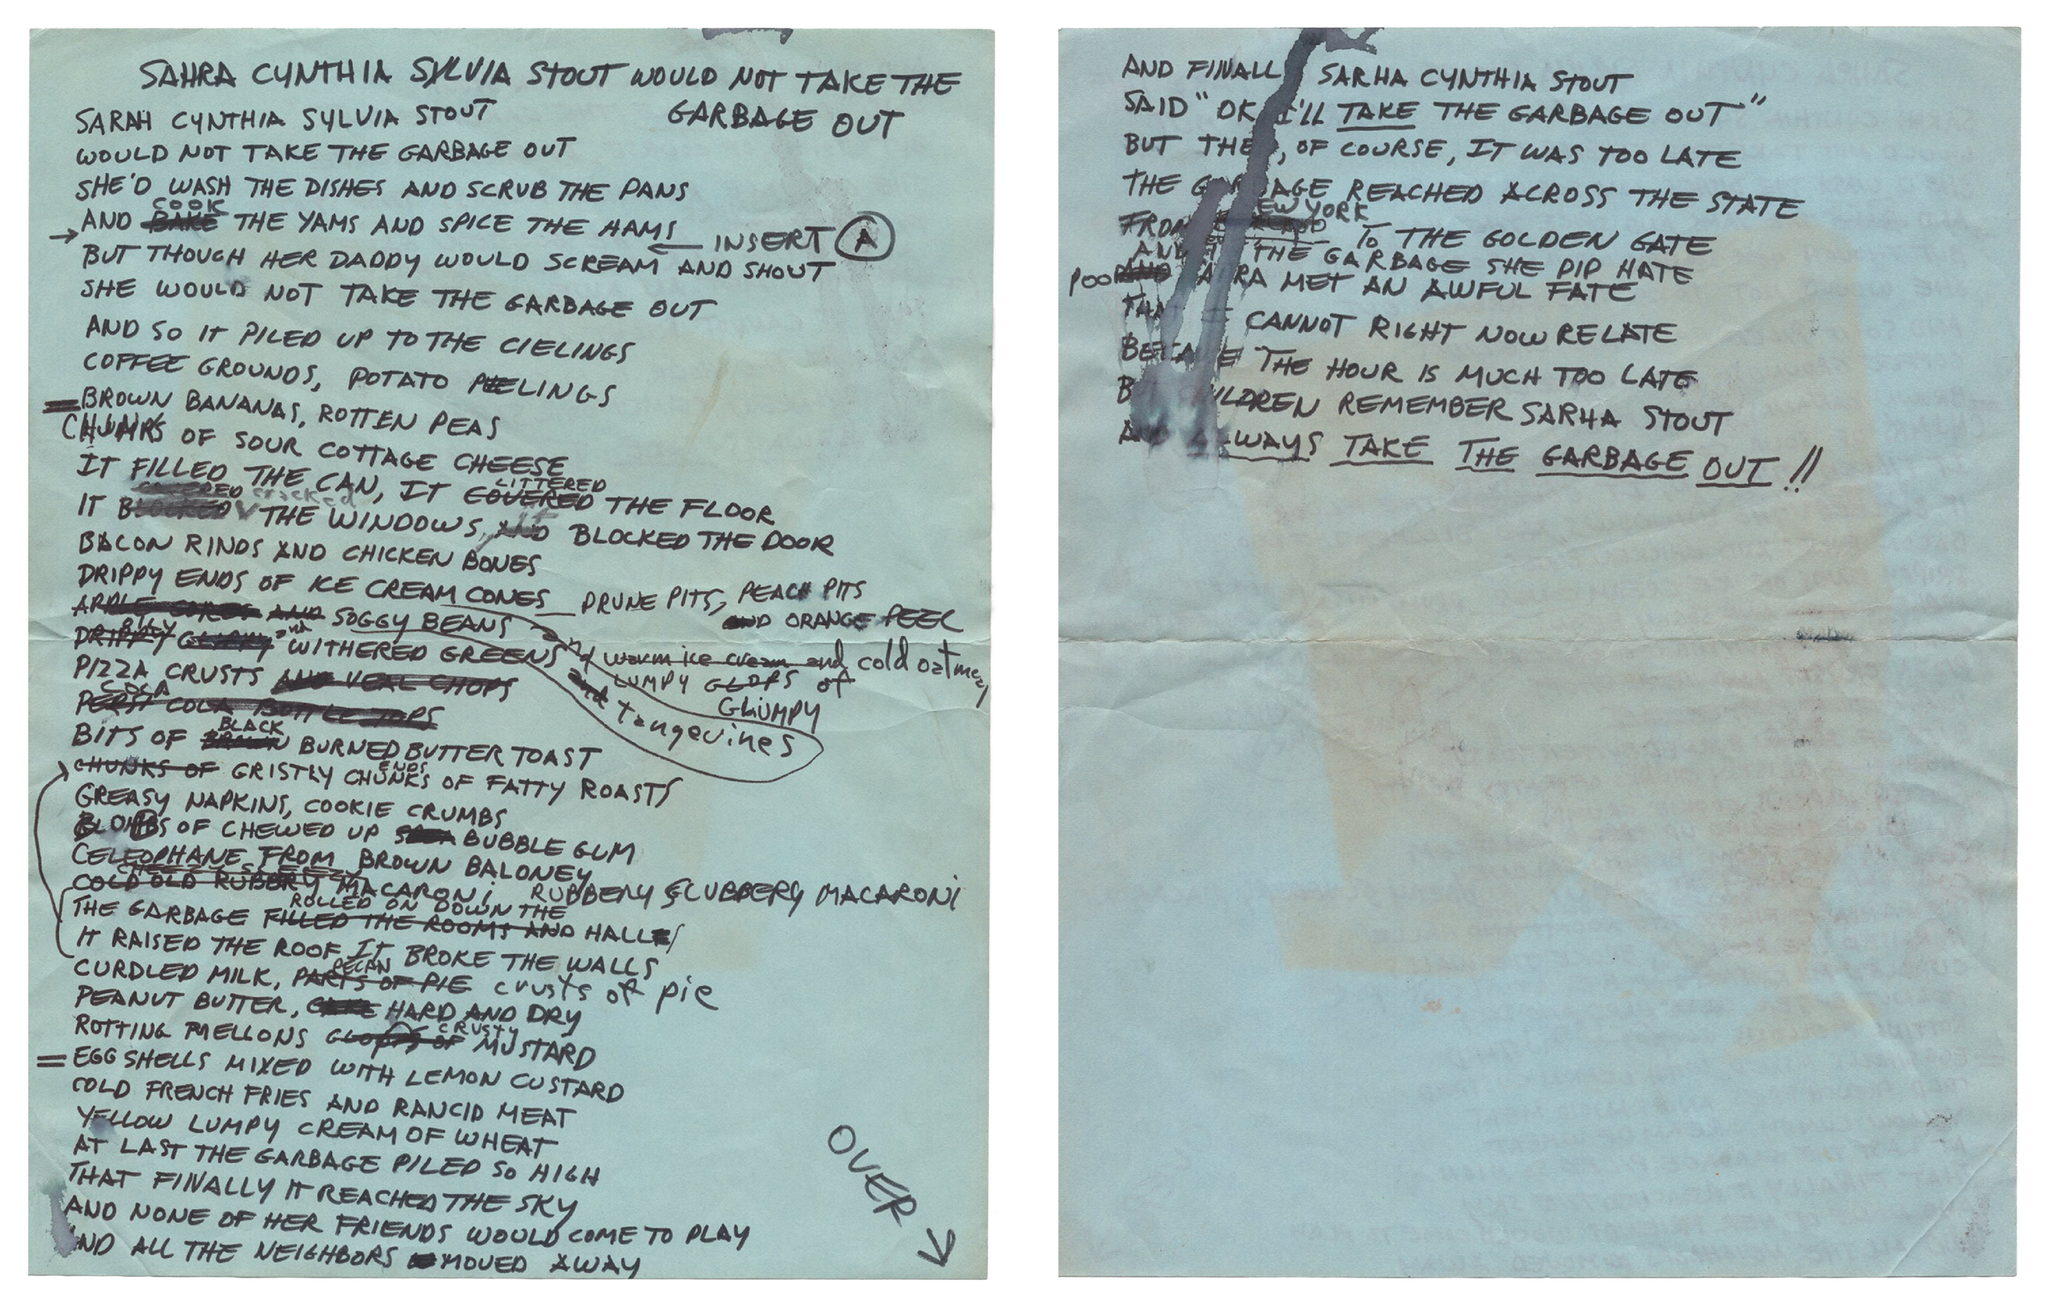 SAHRA CYNTHIA SYLVIA STOUT WOULD NOT TAKE THE
GARBAGE OUT
SARAH CYNTHIA SYLVIA STOUT
WOULD NOT TAKE THE GARBAGE OUT
SHE'D WASH THE DISHES AND SCRUB THE PANS
COOK
→ AND BAKE THE YAMS AND SPICE THE HAMS ← INSERT A
BUT THOUGH HER DADDY WOULD SCREAM AND SHOUT
SHE WOULD NOT TAKE THE GARBAGE OUT
AND SO IT PILED UP TO THE CIELINGS
COFFEE GROUNDS, POTATO PEELINGS
BROWN BANANAS, ROTTEN PEAS
CHUNKS OF SOUR COTTAGE CHEESE
LITTERED
IT FILLED THE CAN, IT COVERED THE FLOOR
COVERED cracked it
IT BLOCKED THE WINDOWS, AND BLOCKED THE DOOR
BACON RINDS AND CHICKEN BONES
DRIPPY ENDS OF ICE CREAM CONES PRUNE PITS, PEACH PITS
AND ORANGE PEEL
APPLE CORES AND SOGGY BEANS and warm ice cream and cold oatmeal
and
DRIPPY WITHERED GREENS and tangerines
LUMPY GLOPS of
GLUMPY
PIZZA CRUSTS AND VEAL CHOPS
COCA
PEPSI COLA BOTTLE TOPS
BLACK
BITS OF BROWN BURNED BUTTER TOAST
ENDS
CHUNKS OF GRISTLY CHUNKS OF FATTY ROASTS
GREASY NAPKINS, COOKIE CRUMBS
BLOBS OF CHEWED UP BUBBLE GUM
CELEOPHANE FROM BROWN BALONEY
COLD OLD RUBBERY MACARONI RUBBERY BLUBBERY MACARONI
ROLLED ON DOWN THE
THE GARBAGE FILLED THE ROOMS AND HALLS
IT RAISED THE ROOF IT BROKE THE WALLS
PECAN
CURDLED MILK, PARTS OF PIE crusts of pie
PEANUT BUTTER, HARD AND DRY
CRUSTY
ROTTING MELLONS OF MUSTARD
= EGG SHELLS MIXED WITH LEMON CUSTARD
COLD FRENCH FRIES AND RANCID MEAT
YELLOW LUMPY CREAM OF WHEAT
AT LAST THE GARBAGE PILED SO HIGH
THAT FINALLY IT REACHED THE SKY
AND NONE OF HER FRIENDS WOULD COME TO PLAY
AND ALL THE NEIGHBORS MOVED AWAY
OVER →
AND FINALL SARHA CYNTHIA STOUT
SAID "OK I'LL TAKE THE GARBAGE OUT"
BUT THE, OF COURSE, IT WAS TOO LATE
THE GARBAGE REACHED ACROSS THE STATE
NEW YORK
FROM TO THE GOLDEN GATE
AND THE GARBAGE SHE DID HATE
POOR AND SAHRA MET AN AWFUL FATE
THAT I CANNOT RIGHT NOW RELATE
BECAUSE THE HOUR IS MUCH TOO LATE
BUT CHILDREN REMEMBER SARHA STOUT
AND ALWAYS TAKE THE GARBAGE OUT!!